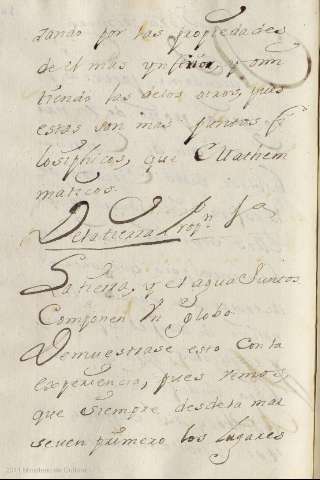 zando por las propiedades
de el mas ynferior, y omi
tiendo las de los otros, pues
estos son mas puntos fi
losiphicos, que Mathem
maticos.
De la tierra Propn. 1a
La tierra, y el agua Juntos
Componen Un globo.
Demuestrase esto con la
experiencia, pues vemos
que Siempre desde la mar
seven primero los lugares
2011 Ministerio de Cultura